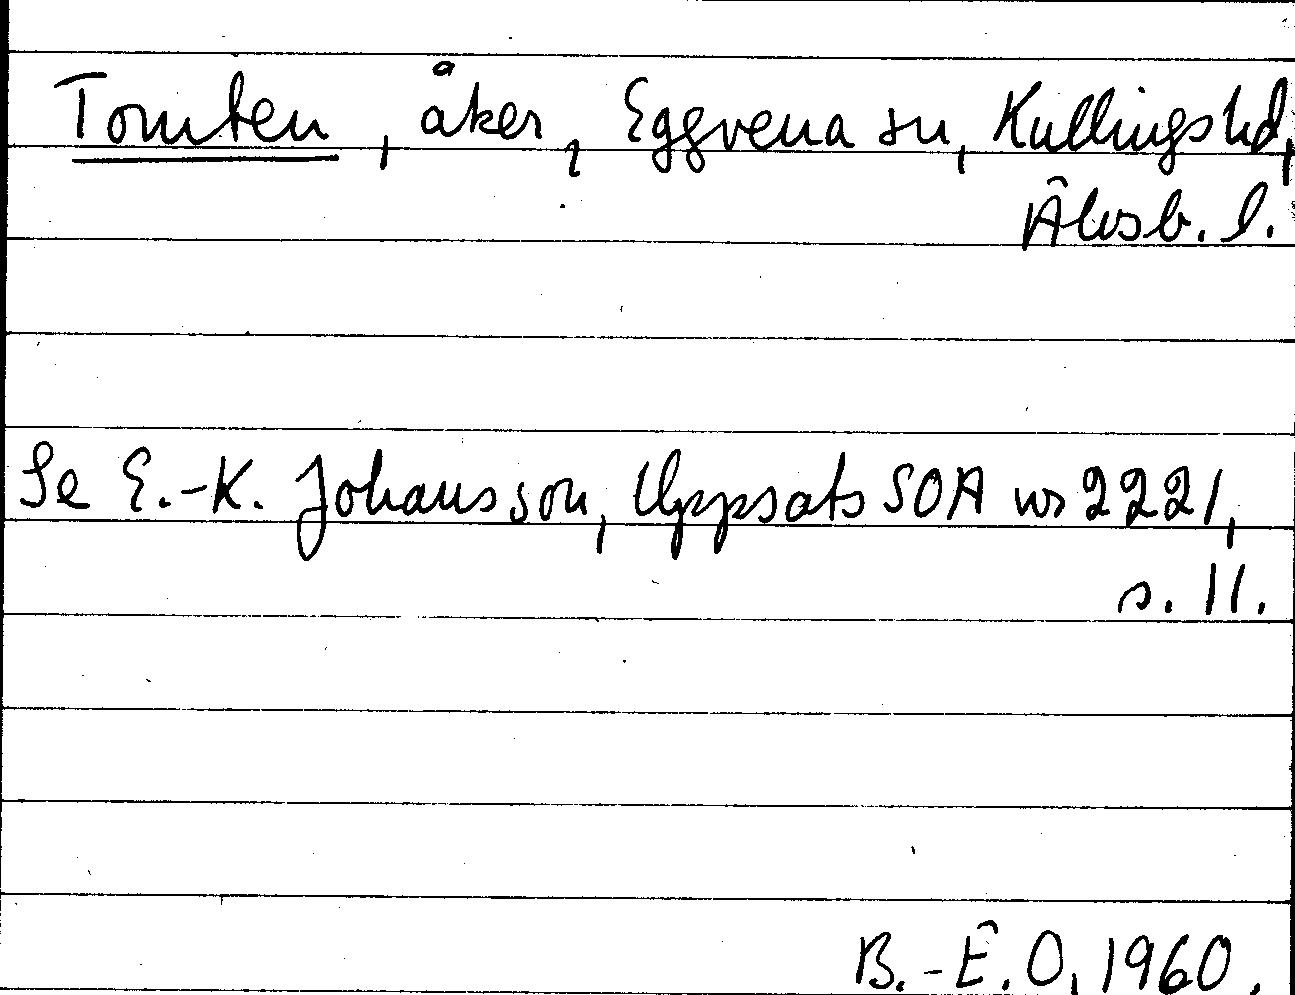 Tomten, åker, Eggvena sn, Kullings hd,
Älvsb. l.
Se E.-K. Johansson, Uppsats SOA nr 2221,
s. 11.
B.-E.O. 1960.